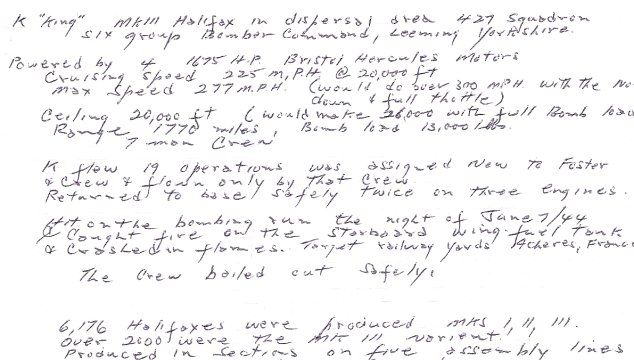 K "King" MKIII Halifax in dispersal area 427 Squadron
Six group Bomber Command, Leeming Yorkshire.
Powered by 4 1675 H.P. Bristol Hercules Motors
Cruising Speed 225 M.P.H. @ 20,000 ft
Max Speed 277 M.P.H. (would do over 300 MPH with the No
down & full throttle)
Ceiling 20,000 ft (would make 26,000 with full Bomb load
Range 1770 miles, Bomb load 13,000 lbs.
7 man Crew
K flew 19 operations was assigned New To Foster
& Crew & flown only by that Crew
Returned to base safely twice on three engines.
Hit on the bombing run the night of June 7/44
& Caught fire on the starboard wing fuel tank
& Crashed in flames. Target railway yards Acheres, France
The Crew bailed out safely.
6,176 Halifaxes were produced MKS I, II, III.
Over 2000 were the MK III varient.
Produced in sections on five assembly lines